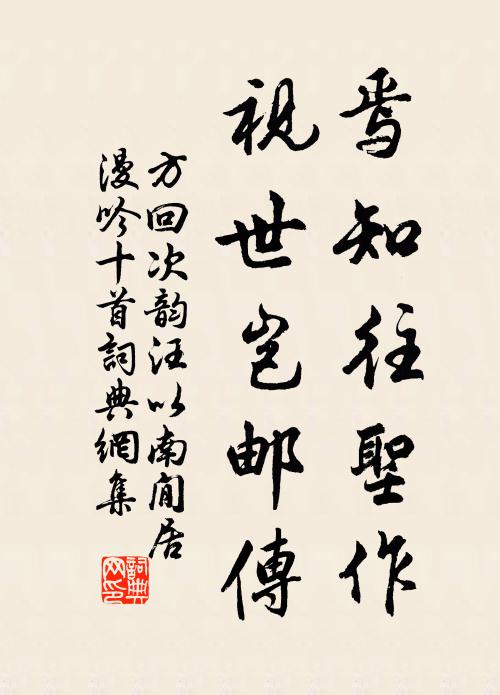 焉知往聖作
視世岂邮傳
方回次韵汪以南閒居
漫吟十首詞典網集
詞典網印